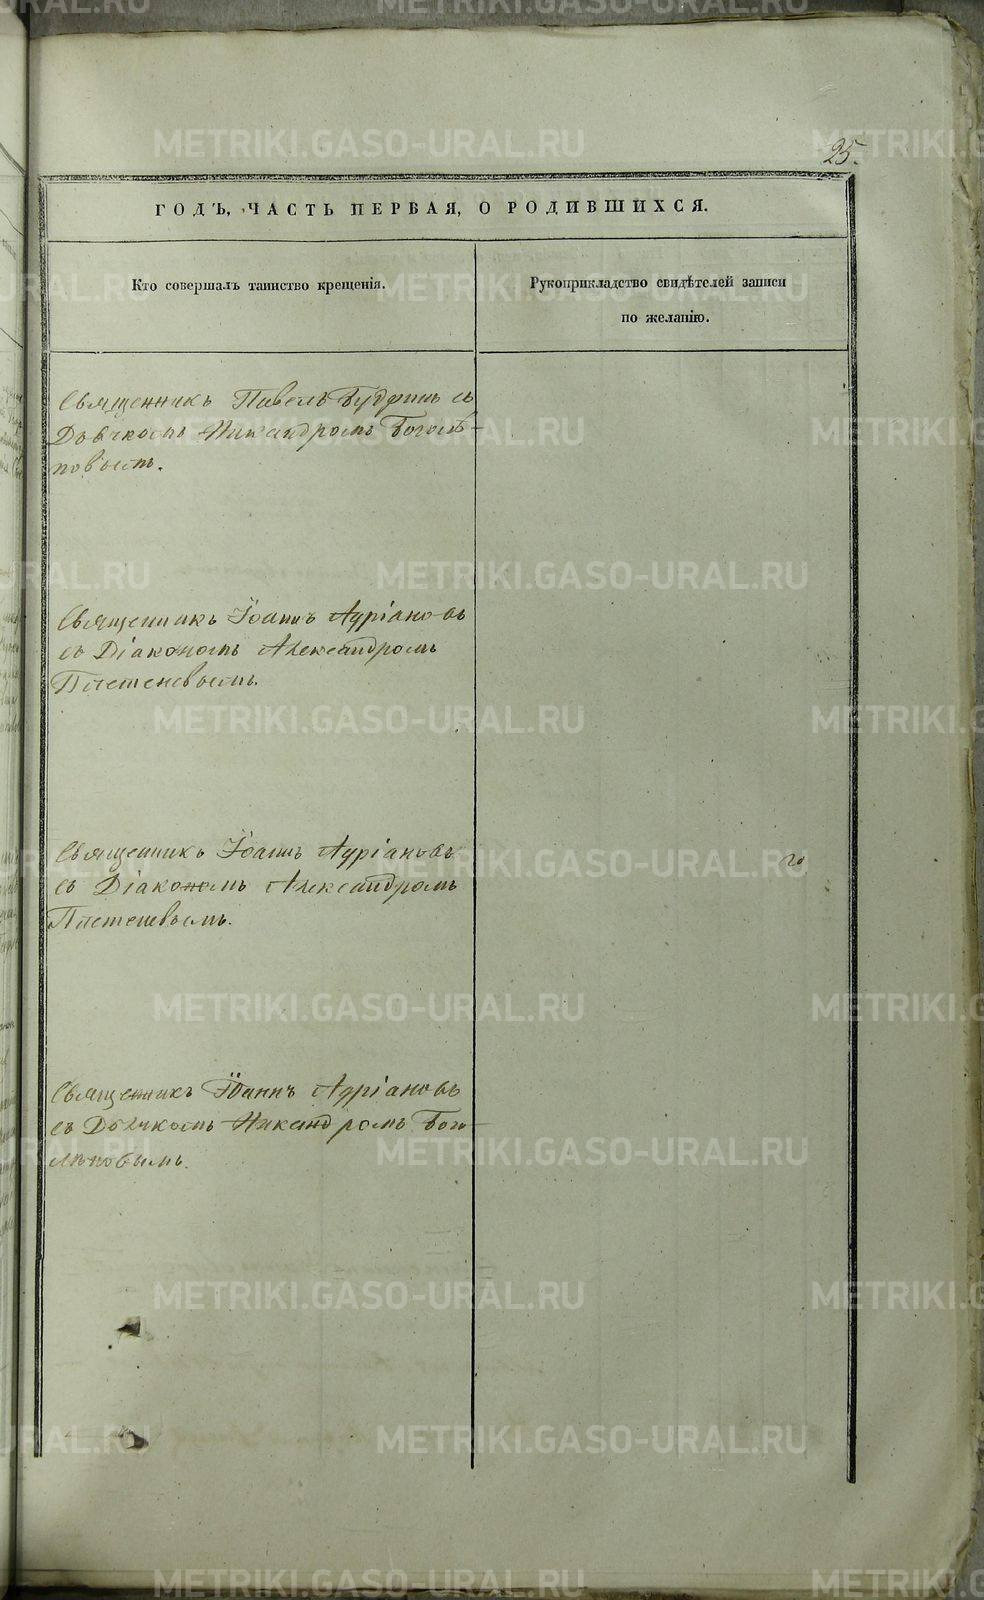 25.
ГОДЪ, ЧАСТЬ ПЕРВАЯ, О РОДИВШИХСЯ.
Кто совершалъ таинство крещенія.
Рукоприкладство свидѣтелей записи
по желанію.
Священникъ Павелъ Будринъ съ
Дьячкомъ Никандромъ Боголѣ-
повымъ.
Священникъ Іоаннъ Адріановъ
съ Діакономъ Александромъ
Плетеневымъ.
Священникъ Іоаннъ Адріановъ
съ Діакономъ Александромъ
Плетеневымъ.
Священникъ Іоаннъ Адріановъ
съ Дьячкомъ Никандромъ Бого-
лѣповымъ.
METRIKI.GASO-URAL.RU